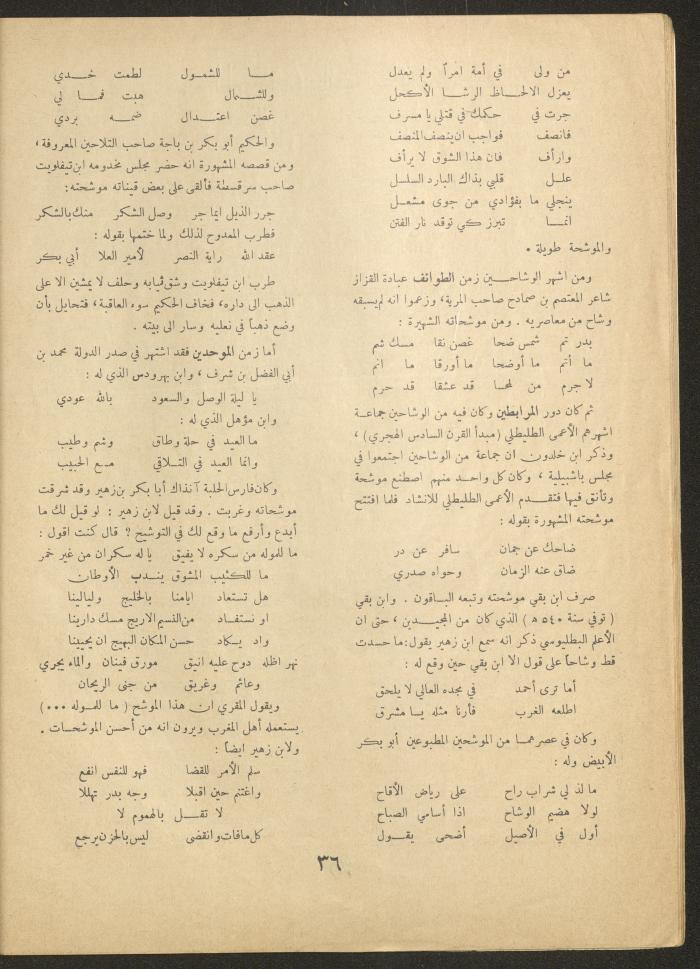 من ولى في أمة امراً ولم يعدل
يعزل الالحاظ الرشا الأكحل
جرت في حكمك في قتلي يا مسرف
فانصف فواجب ان ينصف المنصف
وارأف فان هذا الشوق لا يرأف
علل قلبي بذاك البارد السلسل
ينجلي ما بفؤادي من جوى مشعل
انما تبرز كي توقد نار الفتن
والموشحة طويلة .
ومن اشهر الوشاحين زمن الطوائف عبادة القزاز
شاعر المعتصم بن صمادح صاحب المرية، وزعموا انه لم يسبقه
وشاح من معاصريه . ومن موشحاته الشهيرة :
بدر تم شمس ضحا غصن نقا مسك شم
ما أتم ما أوضحا ما أورقا ما انم
لا جرم من لمحا قد عشقا قد حرم
ثم كان دور المرابطين وكان فيه من الوشاحين جماعة
اشهرهم الأعمى الطليطلي (مبدأ القرن السادس الهجري) ،
وذكر ابن خلدون ان جماعة من الوشاحين اجتمعوا في
مجلس باشبيلية ، وكان كل واحد منهم اصطنع موشحة
وتأنق فيها فتقدم الأعمى الطليطلي للانشاد فلما افتتح
موشحته المشهورة بقوله :
ضاحك عن جمان سافر عن در
ضاق عنه الزمان وحواه صدري
صرف ابن بقي موشحته وتبعه الباقون . وابن بقي
( توفي سنة ٥٤٠ ه ) الذي كان من المجيدين ، حتى ان
الأعلم البطليوسي ذكر انه سمع ابن زهير يقول: ما حسدت
قط وشاحاً على قول الا ابن بقي حين وقع له :
أما ترى أحمد في مجده العالي لا يلحق
اطلعه الغرب فأرنا مثله يا مشرق
وكان في عصرهما من الموشحين المطبوعين أبو بكر
الأبيض وله :
ما لذ لي شراب راح على رياض الأقاح
لولا هضيم الوشاح اذا أسامي الصباح
أول في الأصيل أضحى يقول
ما للشمول لطمت خدي
وللشمال هبت فما لي
غصن اعتدال ضمه بردي
والحكيم أبو بكر بن باجة صاحب التلاحين المعروفة ،
ومن قصصه المشهورة انه حضر مجلس مخدومه ابن تيفلويت
صاحب سرقسطة فألقى على بعض قيناته موشحته:
جرر الذيل ايما جر وصل الشكر منك بالشكر
فطرب الممدوح لذلك ولما ختمها بقوله :
عقد الله راية النصر لأمير العلا أبي بكر
طرب ابن تيفلويت وشق ثيابه وحلف لا يمشين الا على
الذهب الى داره، فخاف الحكيم سوء العاقبة، فتحايل بأن
وضع ذهباً في نعليه وسار الى بيته .
أما زمن الموحدين فقد اشتهر في صدر الدولة محمد بن
أبي الفضل بن شرف ، وابن بهرودس الذي له :
يا ليلة الوصل والسعود بالله عودي
وابن مؤهل الذي له :
ما العيد في حلة وطاق وشم وطيب
وانما العيد في التلاقي مع الحبيب
وكان فارس الحلبة آنذاك أبا بكر بن زهير وقد شرقت
موشحاته وغربت . وقد قيل لابن زهير : لو قيل لك ما
أبدع وأرفع ما وقع لك في التوشيح ? قال كنت اقول :
ما للموله من سكره لا يفيق يا له سكران من غير خمر
ما للكئيب المشوق يندب الأوطان
هل تستعاد ايامنا بالخليج وليالينا
او نستفاد من النسيم الاريج مسك دارينا
واد يكاد حسن المكان البهيج ان يحيينا
نهر اظله دوح عليه انيق مورق فينان والماء يجري
وعائم وغريق من جنى الريحان
ويقول المقري ان هذا الموشح ( ما للموله ...)
يستعمله أهل المغرب ويرون انه من أحسن الموشحات .
ولابن زهير ايضاً :
سلم الأمر للقضا فهو للنفس انفع
واغتنم حين اقبلا وجه بدر تهللا
لا تقل بالهموم لا
كل ما فات وانقضى ليس بالحزن يرجع
٣٦